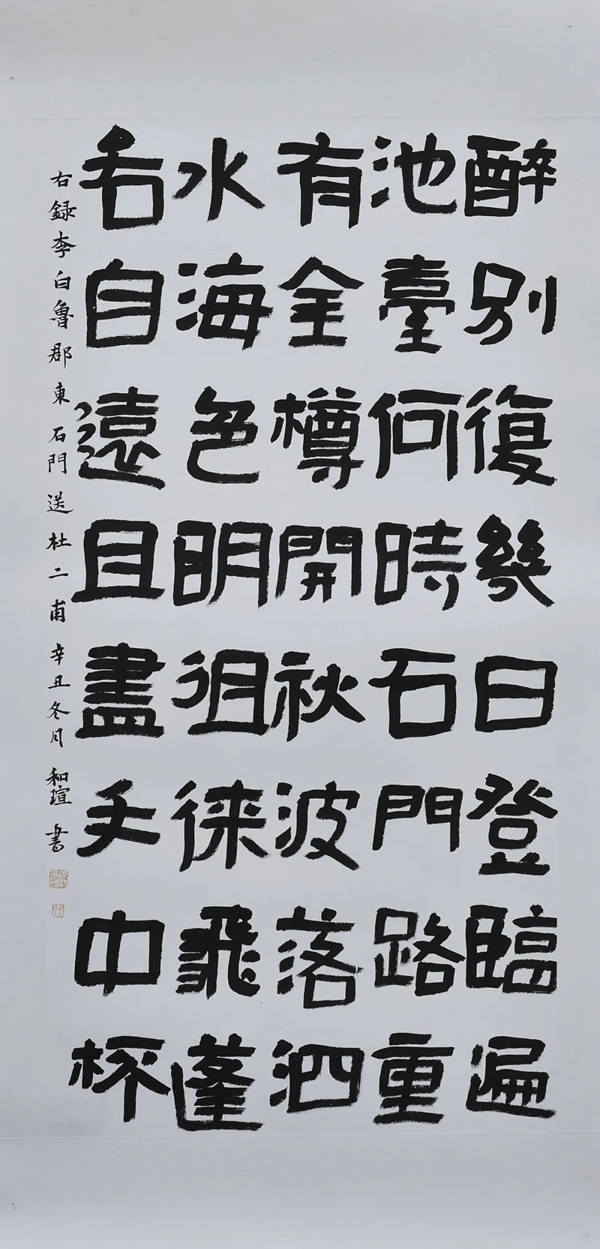 醉別復幾日登臨遍
池臺何時石門路重
有金樽開秋波落泗
水海色明徂徠飛蓬
各自遠且盡手中杯
右録李白魯郡東石門送杜二甫 辛丑冬月 和瑄 書